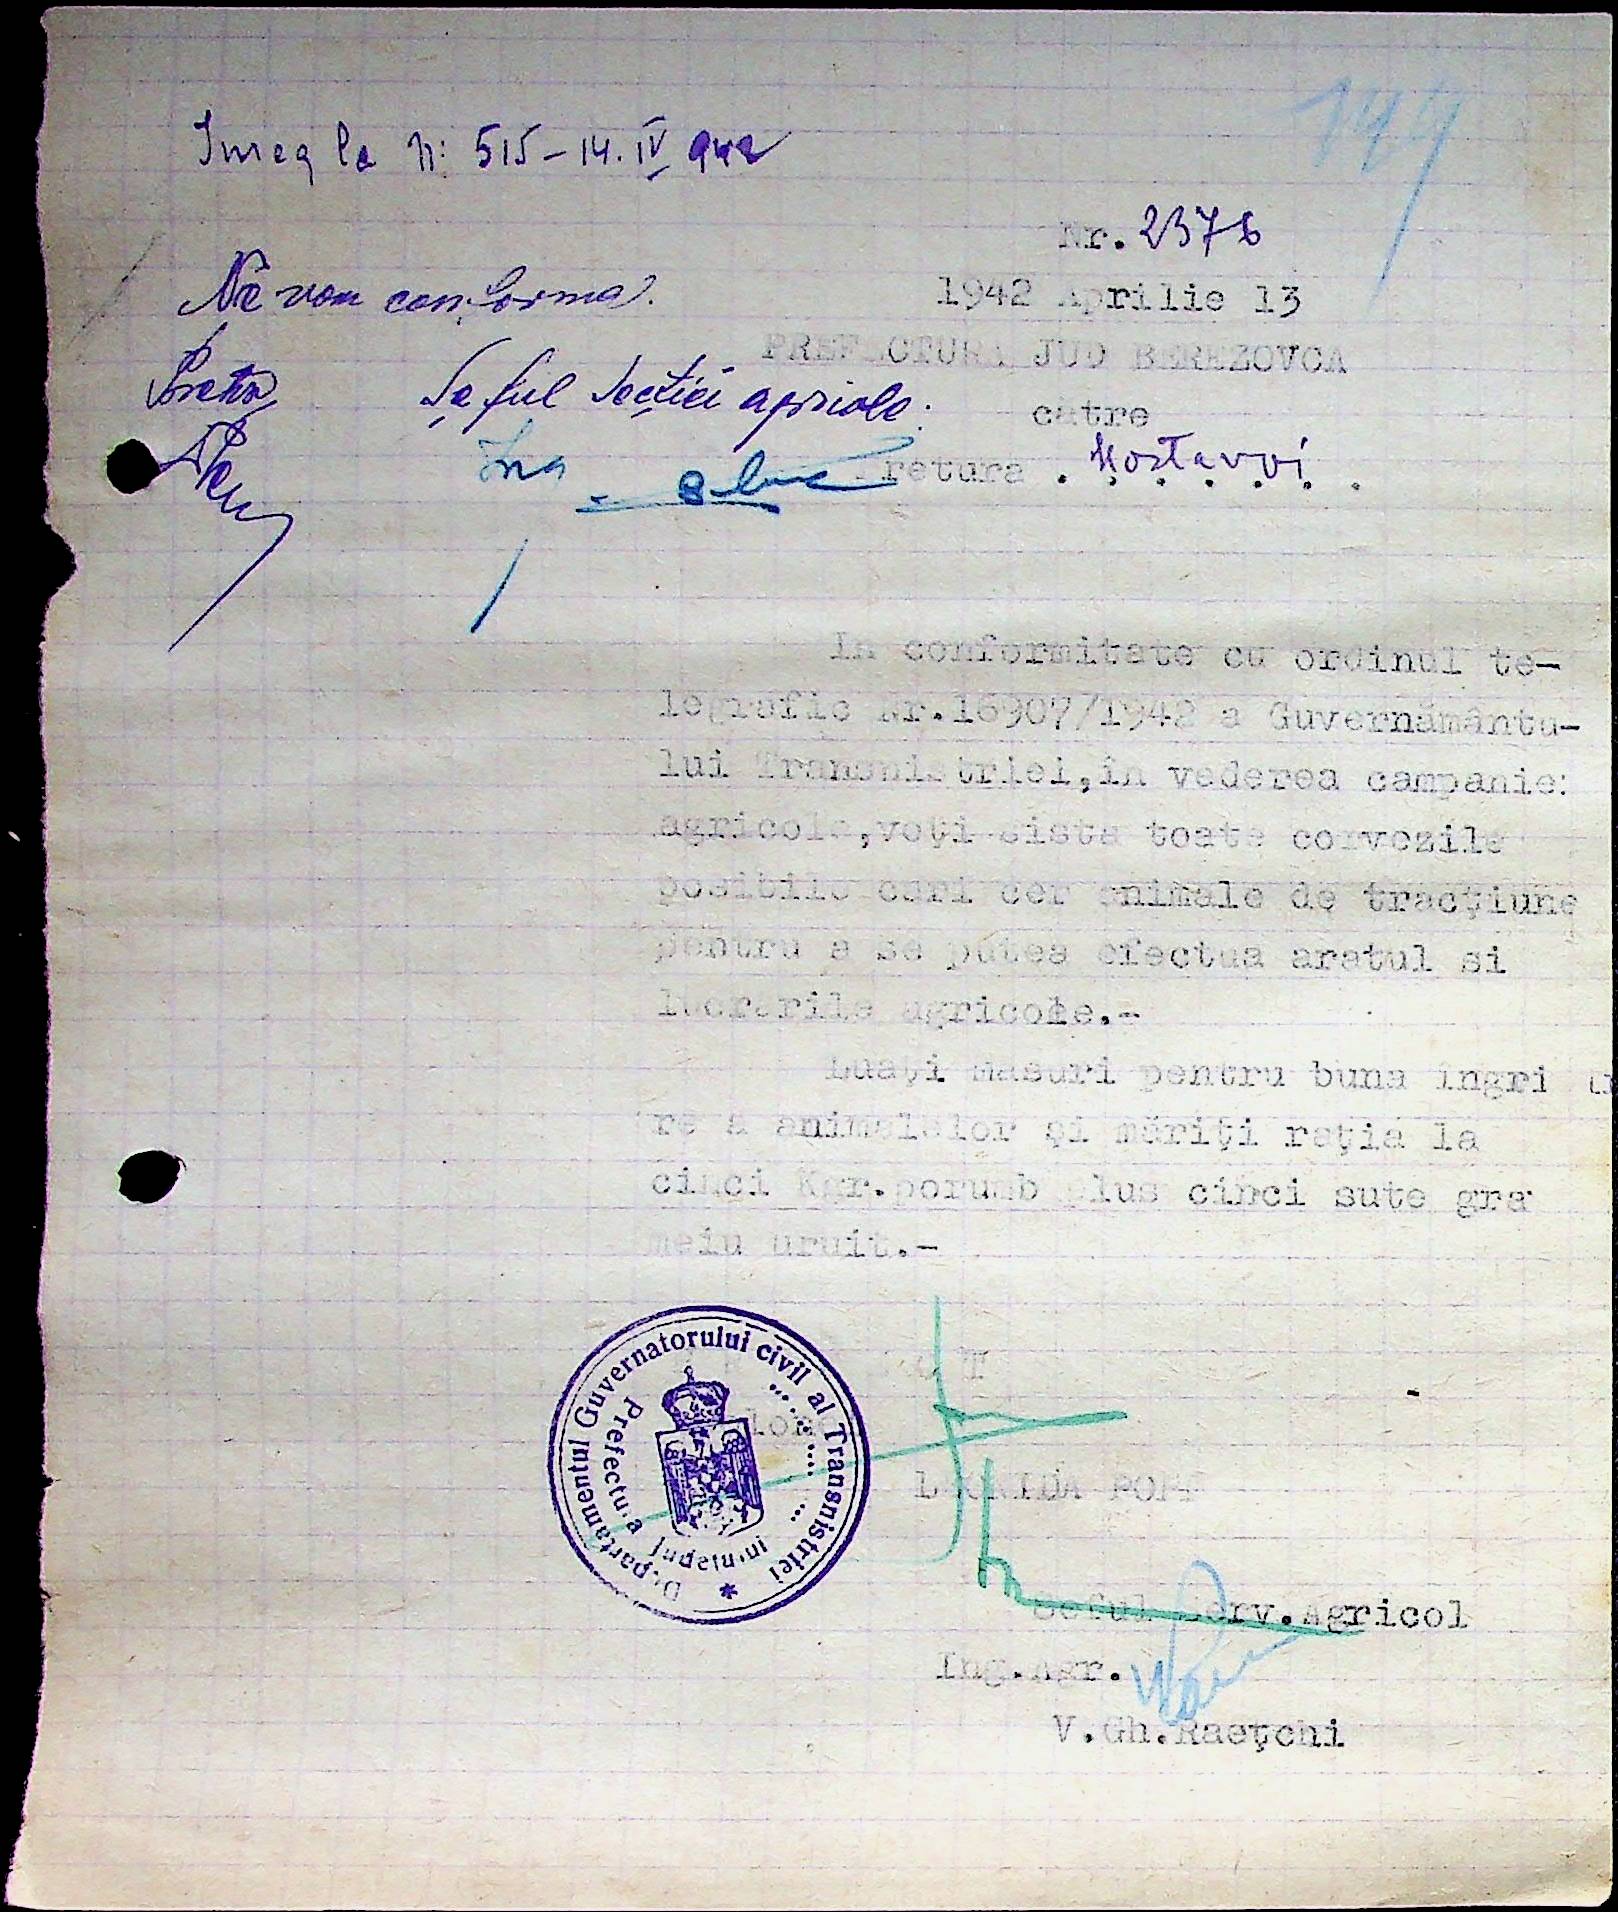 Inreg la N: 515 – 14. IV 942
149
Nr. 2376
Ne vom conforma.
1942 Aprilie 13
PREFECTURA JUD BEREZOVCA
Pretor
Șeful Secției agricole.
către
Ing
Pretura . Mostovoi
In conformitate cu ordinul te-
legrafic Nr.16907/1942 a Guvernământu-
lui Transnistriei,în vederea campaniei
agricole,veți sista toate corvezile
positile cari cer animale de tracțiune
pentru a se putea efectua aratul si
lucrările agricole.-
Luați masuri pentru buna ingriji
re a animalelor și măriți rația la
cinci Kgr.porumb plus cinci sute gra
meiu uruit.-
Departamentul Guvernatorului civil al Transnistriei
Prefectura Județului
LEONIDA POPP
Seful Serv.Agricol
Ing.Agr.
V.Gh.Raețchi